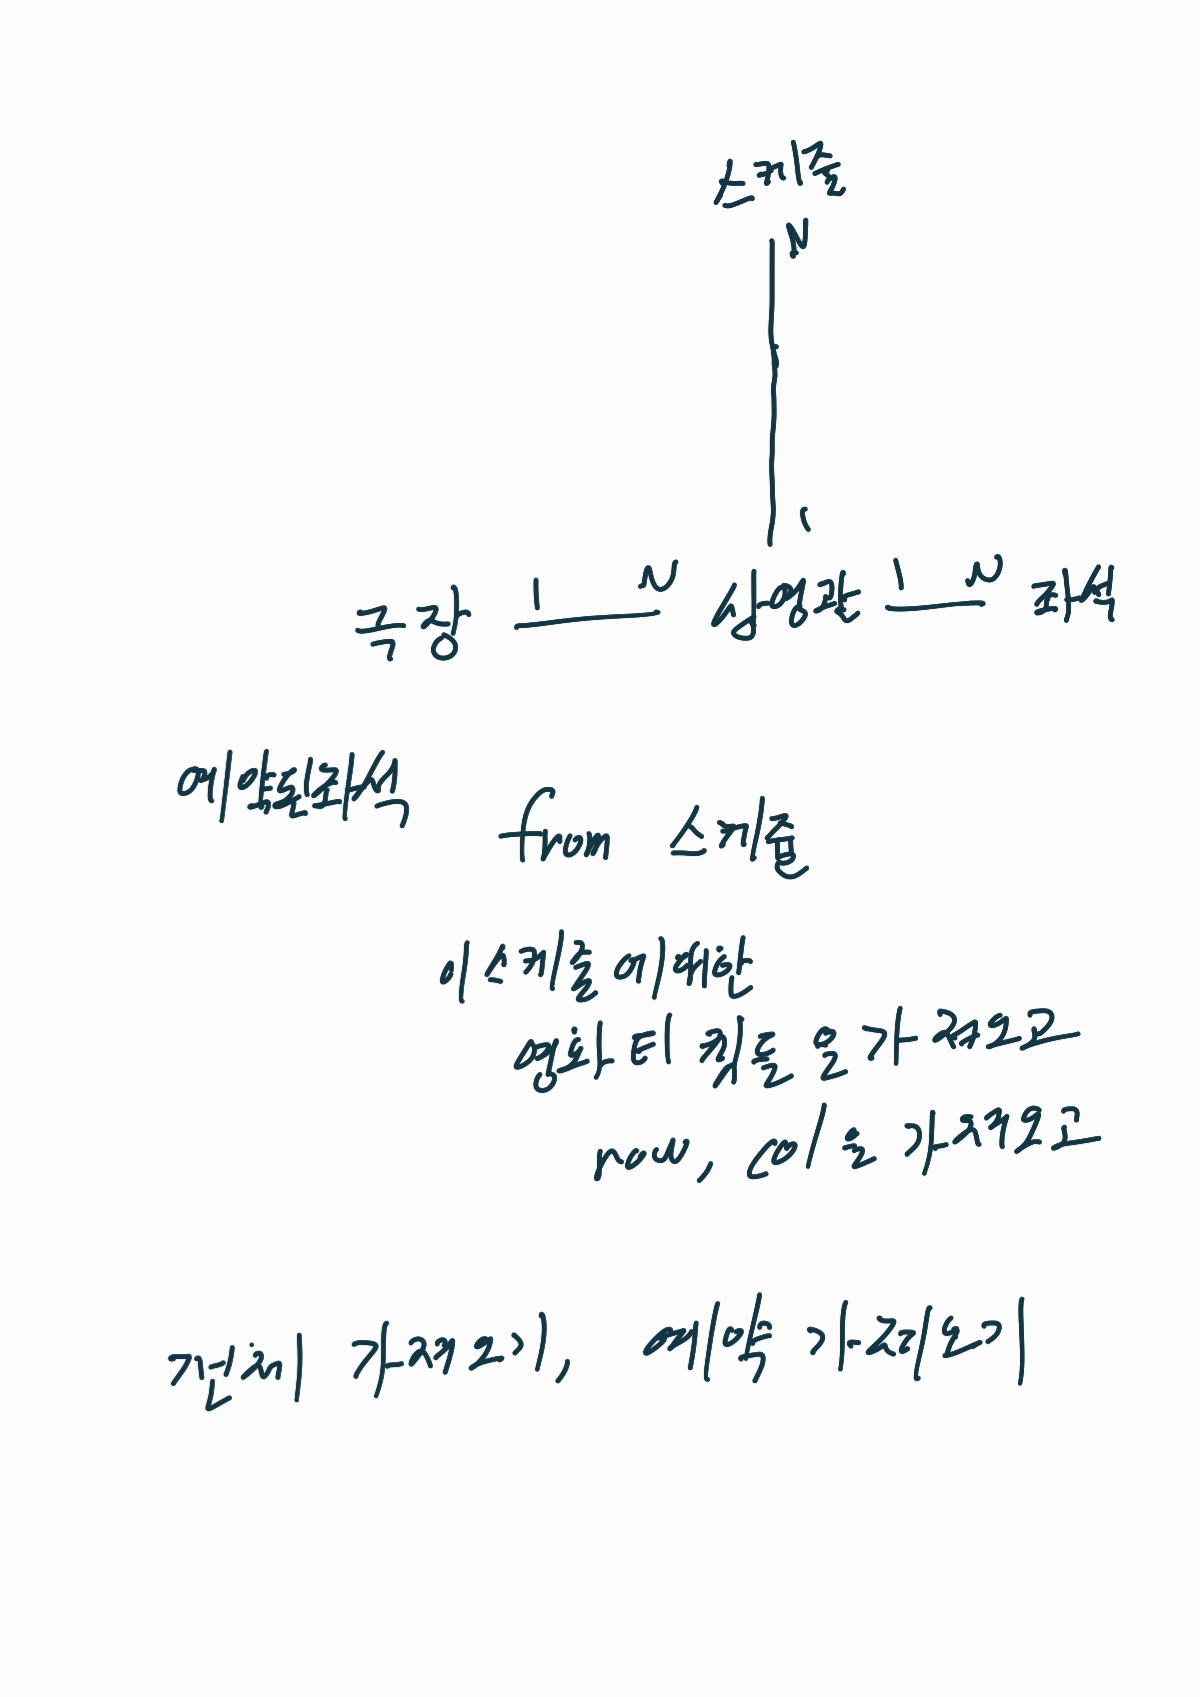 스케줄
N
1
극장 1 N 상영관 1 N 좌석
예약된좌석
from 스케줄
이 스케줄에대한
영화티켓들을 가져오고
row, col을 가져오고
전체 가져오기, 예약 가져오기